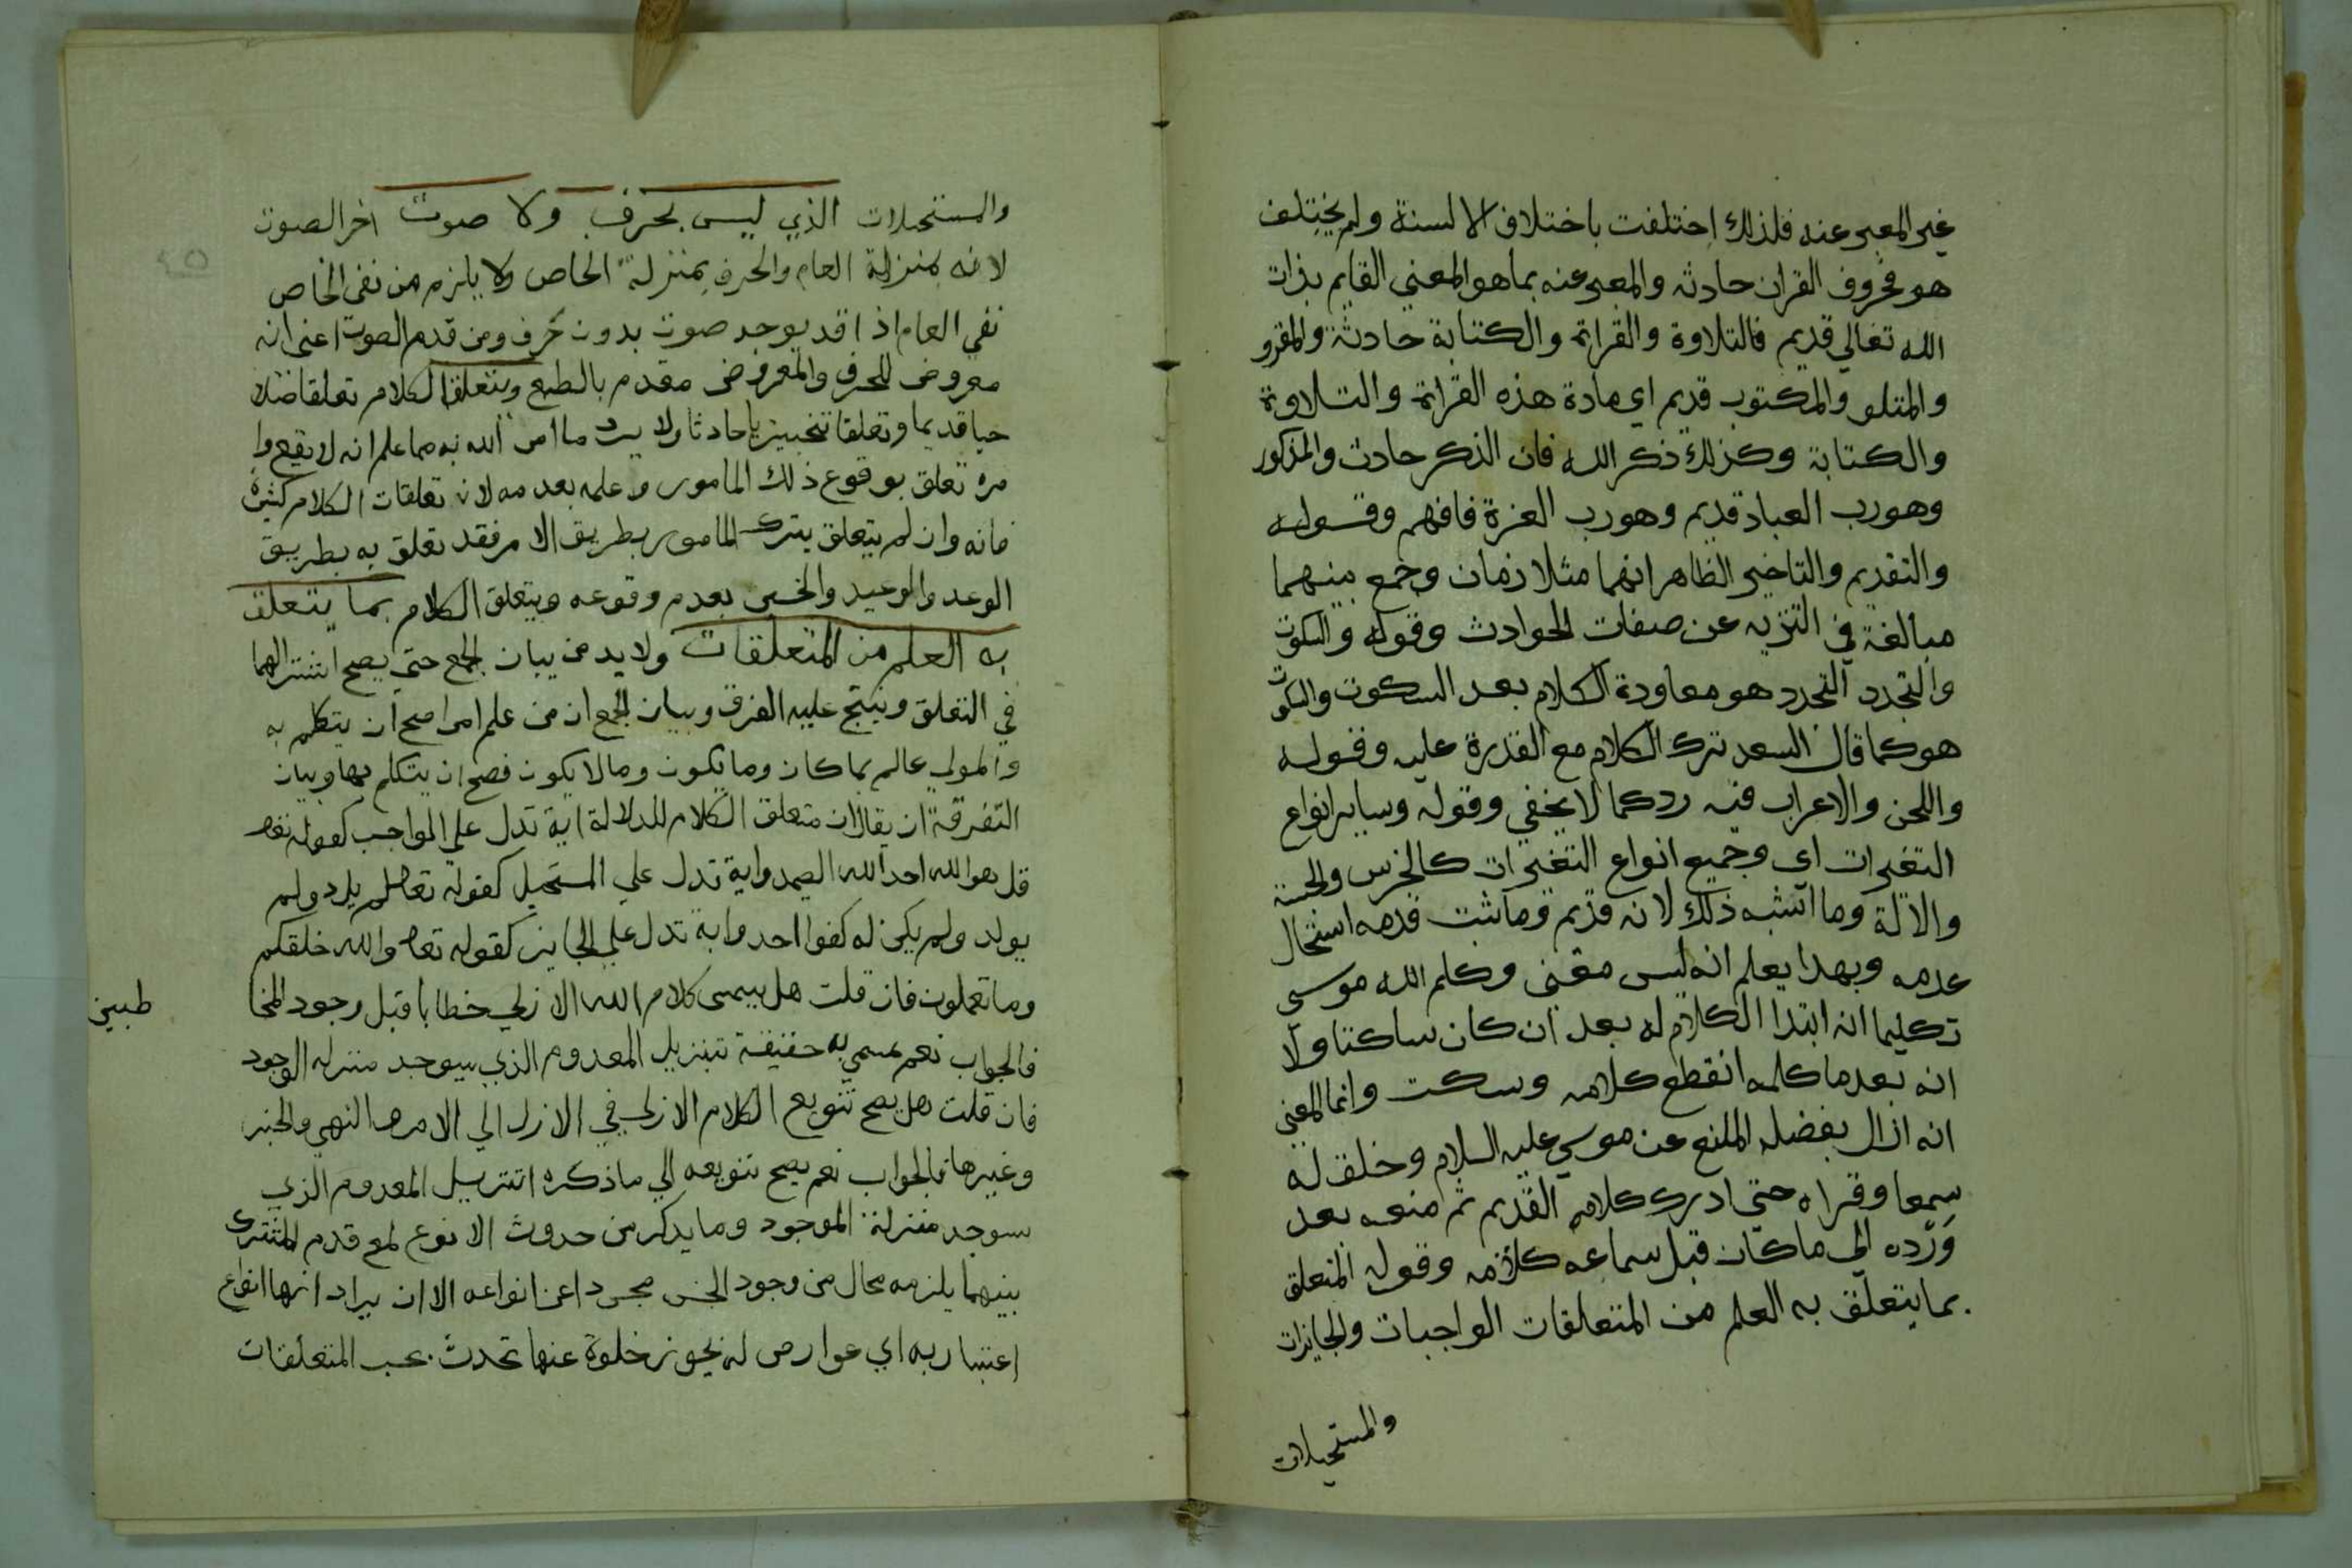 غير المعبر عنه فلذلك اختلفت باختلاف الالسنة ولم يختلف
هو فحروف القران حادثه والمعبر عنه بما هو المعني القايم بذات
الله تعالي قديم فالتلاوة والقراة والكتابة حادثة والمقرو
والمتلو والمكتوب قديم اي مادة هذه القراة والتلاوة
والكتابة وكذلك ذكر الله فان الذكر حادث والمذكور
وهو رب العباد قديم وهو رب العزة فافهم وقوله
والتقديم والتاخير الظاهر انهما مثلا زمان وجمع بينهما
مبالغة في التنزيه عن صفات الحوادث وقوله والسكوت
والتجدد التجدد هو معاودة الكلام بعد السكوت والسكوت
هو كما قال السعد ترك الكلام مع القدرة عليه وقوله
واللحن والاعراب فيه رد كما لا يخفي وقوله وساير انواع
التغيرات اي وجميع انواع التغيرات كالخرس والحبسة
والالة وما اشبه ذلك لانه قديم وما ثبت قدمه استحال
عدمه وبهذا يعلم انه ليس معني وكلم الله موسي
تكليما انه ابتدا الكلام له بعد ان كان ساكتا ولا
انه بعدما كلمه انقطع كلامه وسكت وانما المعني
انه ازال بفضله المنع عن موسي عليه السلام وخلق له
سمعا وقواه حتي ادرك كلامه القديم ثم منعه بعد
ورده الي ما كان قبل سماعه كلامه وقوله المتعلق
بما يتعلق به العلم من المتعلقات الواجبات والجايزات
والمستحيلات
والمستحيلات الذي ليس بحرف ولا صوت اخر الصوت
لانه بمنزلة العام والحرف بمنزلة الخاص ولا يلزم من نفي الخاص
نفي العام اذ قد يوجد صوت بدون حرف ومن قدم الصوت اعني انه
معروض للحرف والمعروض مقدم بالطبع ويتعلق الكلام تعلقا صلا
حيا قديما وتعلقا تنجيزيا حادثا ولا يرد ما امر الله به مما علم انه لا يقع وا
مره تعلق بوقوع ذلك المامور وعلمه بعدمه لان تعلقات الكلام كثيرة
فانه وان لم يتعلق بترك المامور بطريق الامر فقد تعلق به بطريق
الوعد والوعيد والخبر بعدم وقوعه ويتعلق الكلام بما يتعلق
به العلم من المتعلقات ولا بد من بيان الجمع حتي يصح اشتراكهما
في التعلق وينتج عليه الفرق وبيان الجمع ان من علم امرا صح ان يتكلم به
والمولي عالم بما كان وما يكون وما لا يكون فصح ان يتكلم بها وبيان
التفرقة ان يقال ان متعلق الكلام للدلالة اية تدل علي الواجب كقوله تعا
قل هو الله احد الله الصمد واية تدل علي المستحيل كقوله تعا لم يلد ولم
يولد ولم يكن له كفوا احد واية تدل علي الجايز كقوله تعا والله خلقكم
وما تعملون فان قلت هل يسمي كلام الله الازلي خطابا قبل وجود المخا
طبين
فالجواب نعم يسمي به حقيقة بتنزيل المعدوم الذي سيوجد منزله الوجود
فان قلت هل يصح تنويع الكلام الازلي في الازل الي الامر والنهي والخبر
وغيرها فالجواب نعم يصح تنويعه الي ما ذكره اتنزيل المعدوم الذي
سوجد منزلة الموجود وما يذكر من حدوث الانوع لمع قدم المشترك
بينهما يلزمه محال من وجود الجنس مجردا عن انواعه الا ان يراد انها انواع
اعتباريه اي عوارض له يجوز خلوه عنها تحدث بحسب المتعلقات